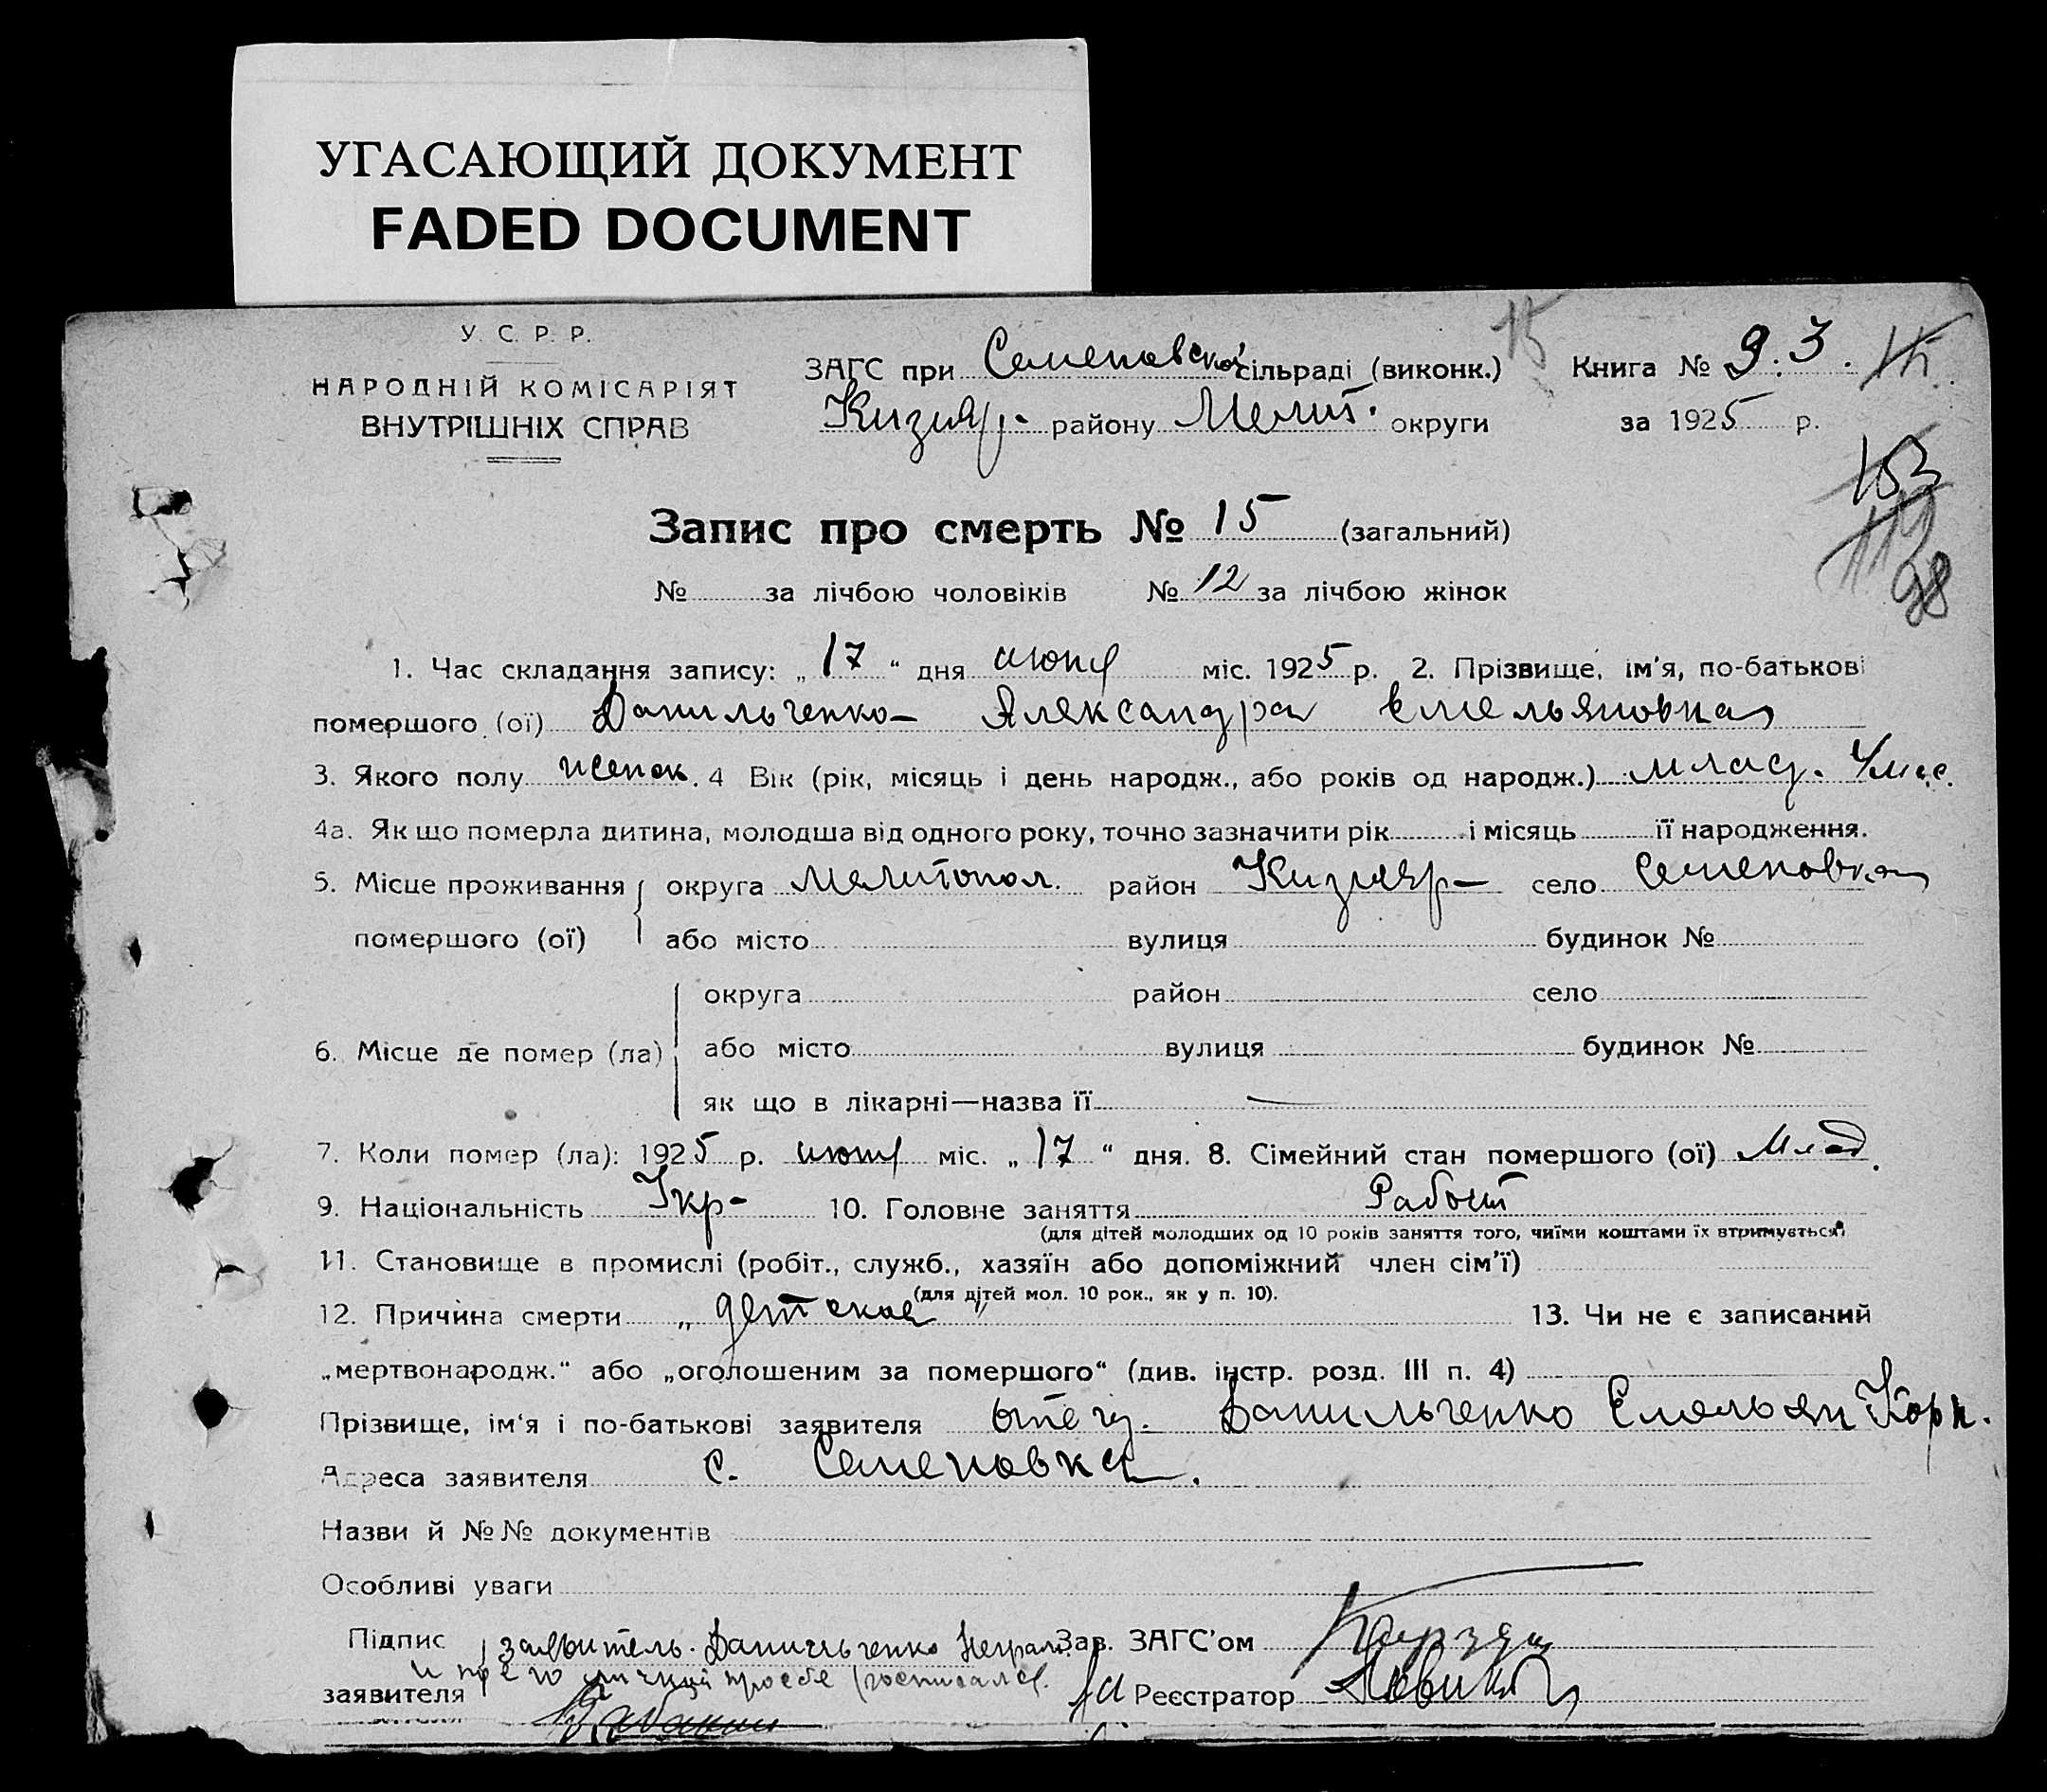 УГАСАЮЩИЙ ДОКУМЕНТ
FADED DOCUMENT
У. С. Р. Р.
НАРОДНІЙ КОМІСАРІЯТ
ВНУТРІШНІХ СПРАВ
ЗАГС при Семеновской сільраді (виконк.)
Кизияр. району Мелит. округи
15
Книга № 9. 3. 15
за 1925 р.
153
113
98
Запис про смерть № 15 (загальний)
№ за лічбою чоловіків № 12 за лічбою жінок
1. Час складання запису: „ 17 “ дня июня міс. 1925 р. 2. Прізвище, ім'я, по-батькові
помершого (ої) Данильченко Александра Емельяновна
3. Якого полу женск. 4 Вік (рік, місяць і день народж., або років од народж.) млад. 4 мес.
4а. Як що померла дитина, молодша від одного року, точно зазначити рік і місяць її народження.
5. Місце проживання округа Мелитопол. район Кизияр село Семеновка
помершого (ої) або місто вулиця будинок №
округа район село
6. Місце де помер (ла) або місто вулиця будинок №
як що в лікарні—назва її —
7. Коли помер (ла): 1925 р. июня міс. „ 17 “ дня. 8. Сімейний стан помершого (ої) Млад.
9. Національність Укр- 10. Головне заняття Работ
(для дітей молодших од 10 років заняття того, чиїми коштами їх втримується)
11. Становище в промислі (робіт., служб., хазяїн або допоміжний член сім'ї)
(для дітей мол. 10 рок., як у п. 10).
12. Причина смерти „ детская “ 13. Чи не є записаний
„мертвонародж.“ або „оголошеним за помершого“ (див. інстр. розд. III п. 4)
Прізвище, ім'я і по-батькові заявителя отец. Данильченко Емельян Корн.
Адреса заявителя с. Семеновка.
Назви й №№ документів
Особливі уваги
Підпис заявитель. Данильченко Неграм. Зав. ЗАГС'ом
и по его личной просьбе росписался.
заявителя за Реєстратор